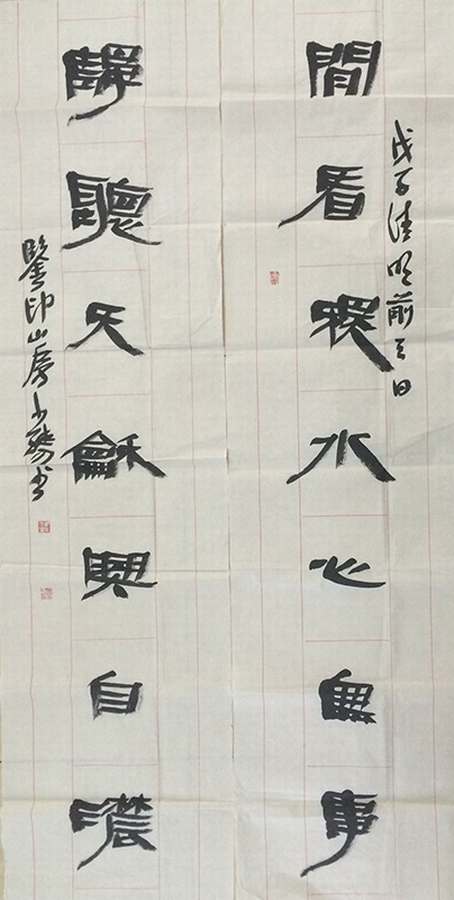 戊子清明前三日
閒看秋水心無事
靜聽天龢興自濃
鑒印山房少孺書